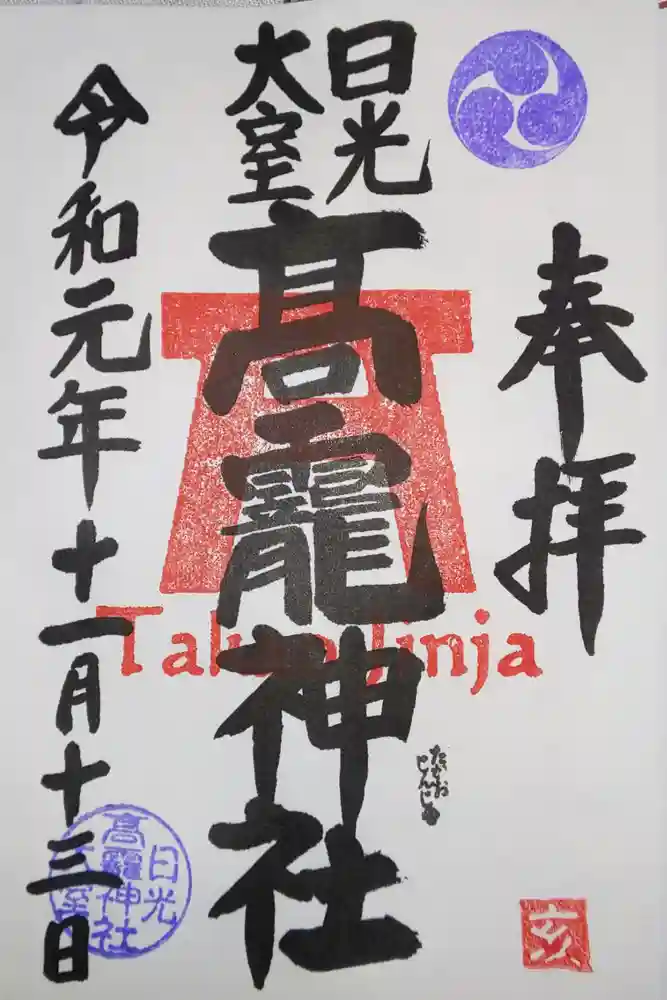 奉拝
日光
大室
高龗神社
たかお
じんじゃ
令和元年十一月十三日
Takao Jinja
日光
高龗神社
大室
亥